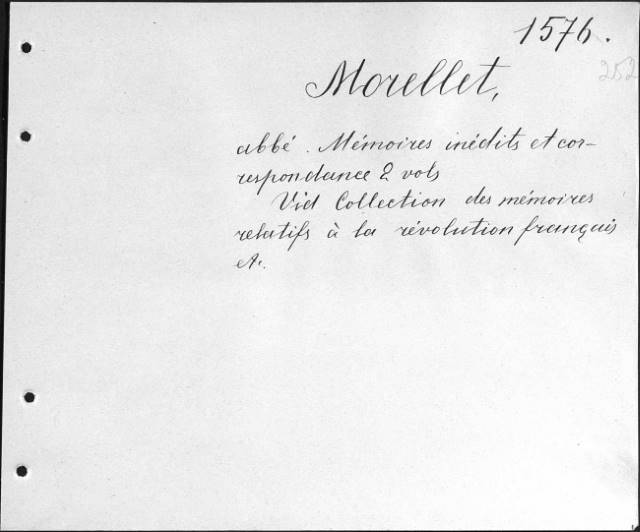 1576.
252
Morellet,
abbé. Mémoires inédits et cor-
respondance 2 vols
Vid Collection des mémoires
relatifs à la révolution français
etc.